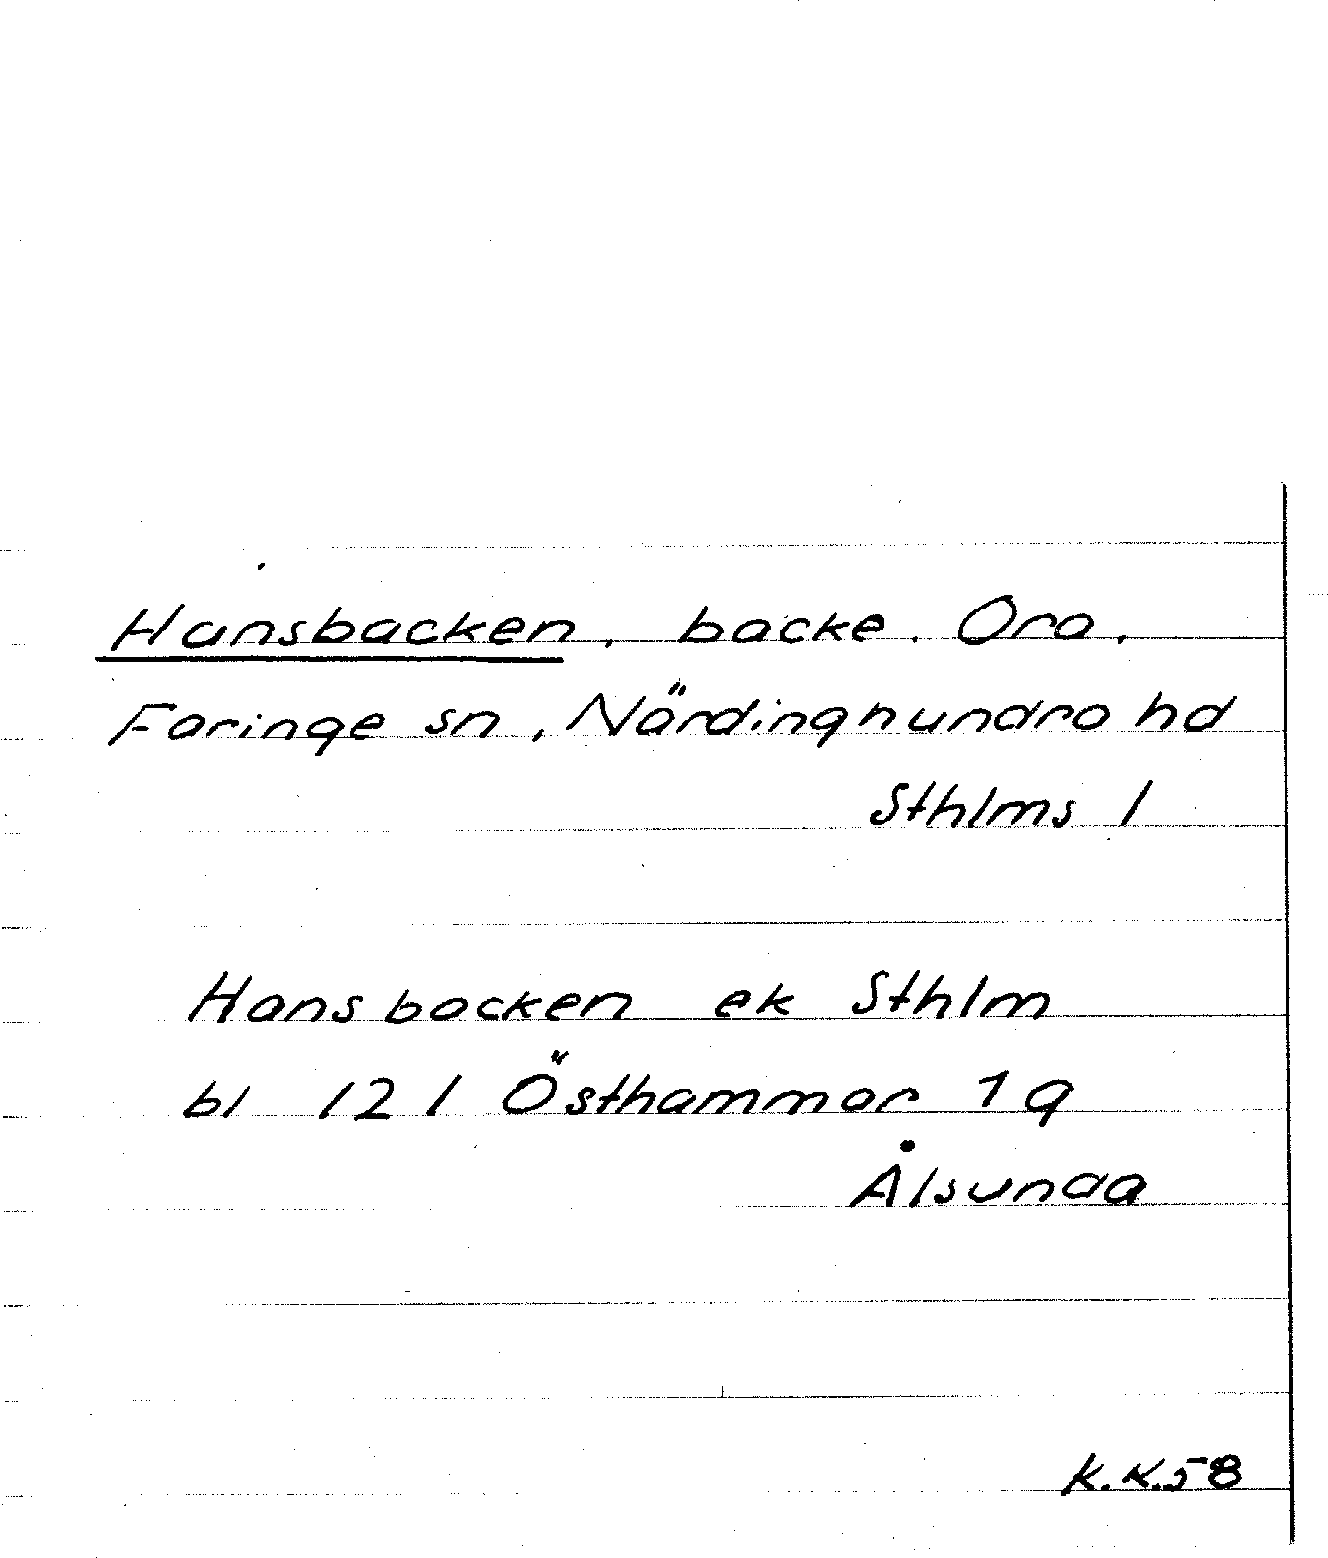 Hansbacken, backe. Ora,
Faringe sn, Närdinghundra hd
Sthlms l
Hansbacken ek Sthlm
bl 121 Östhammar 1g
Ålsunda
K.K.58